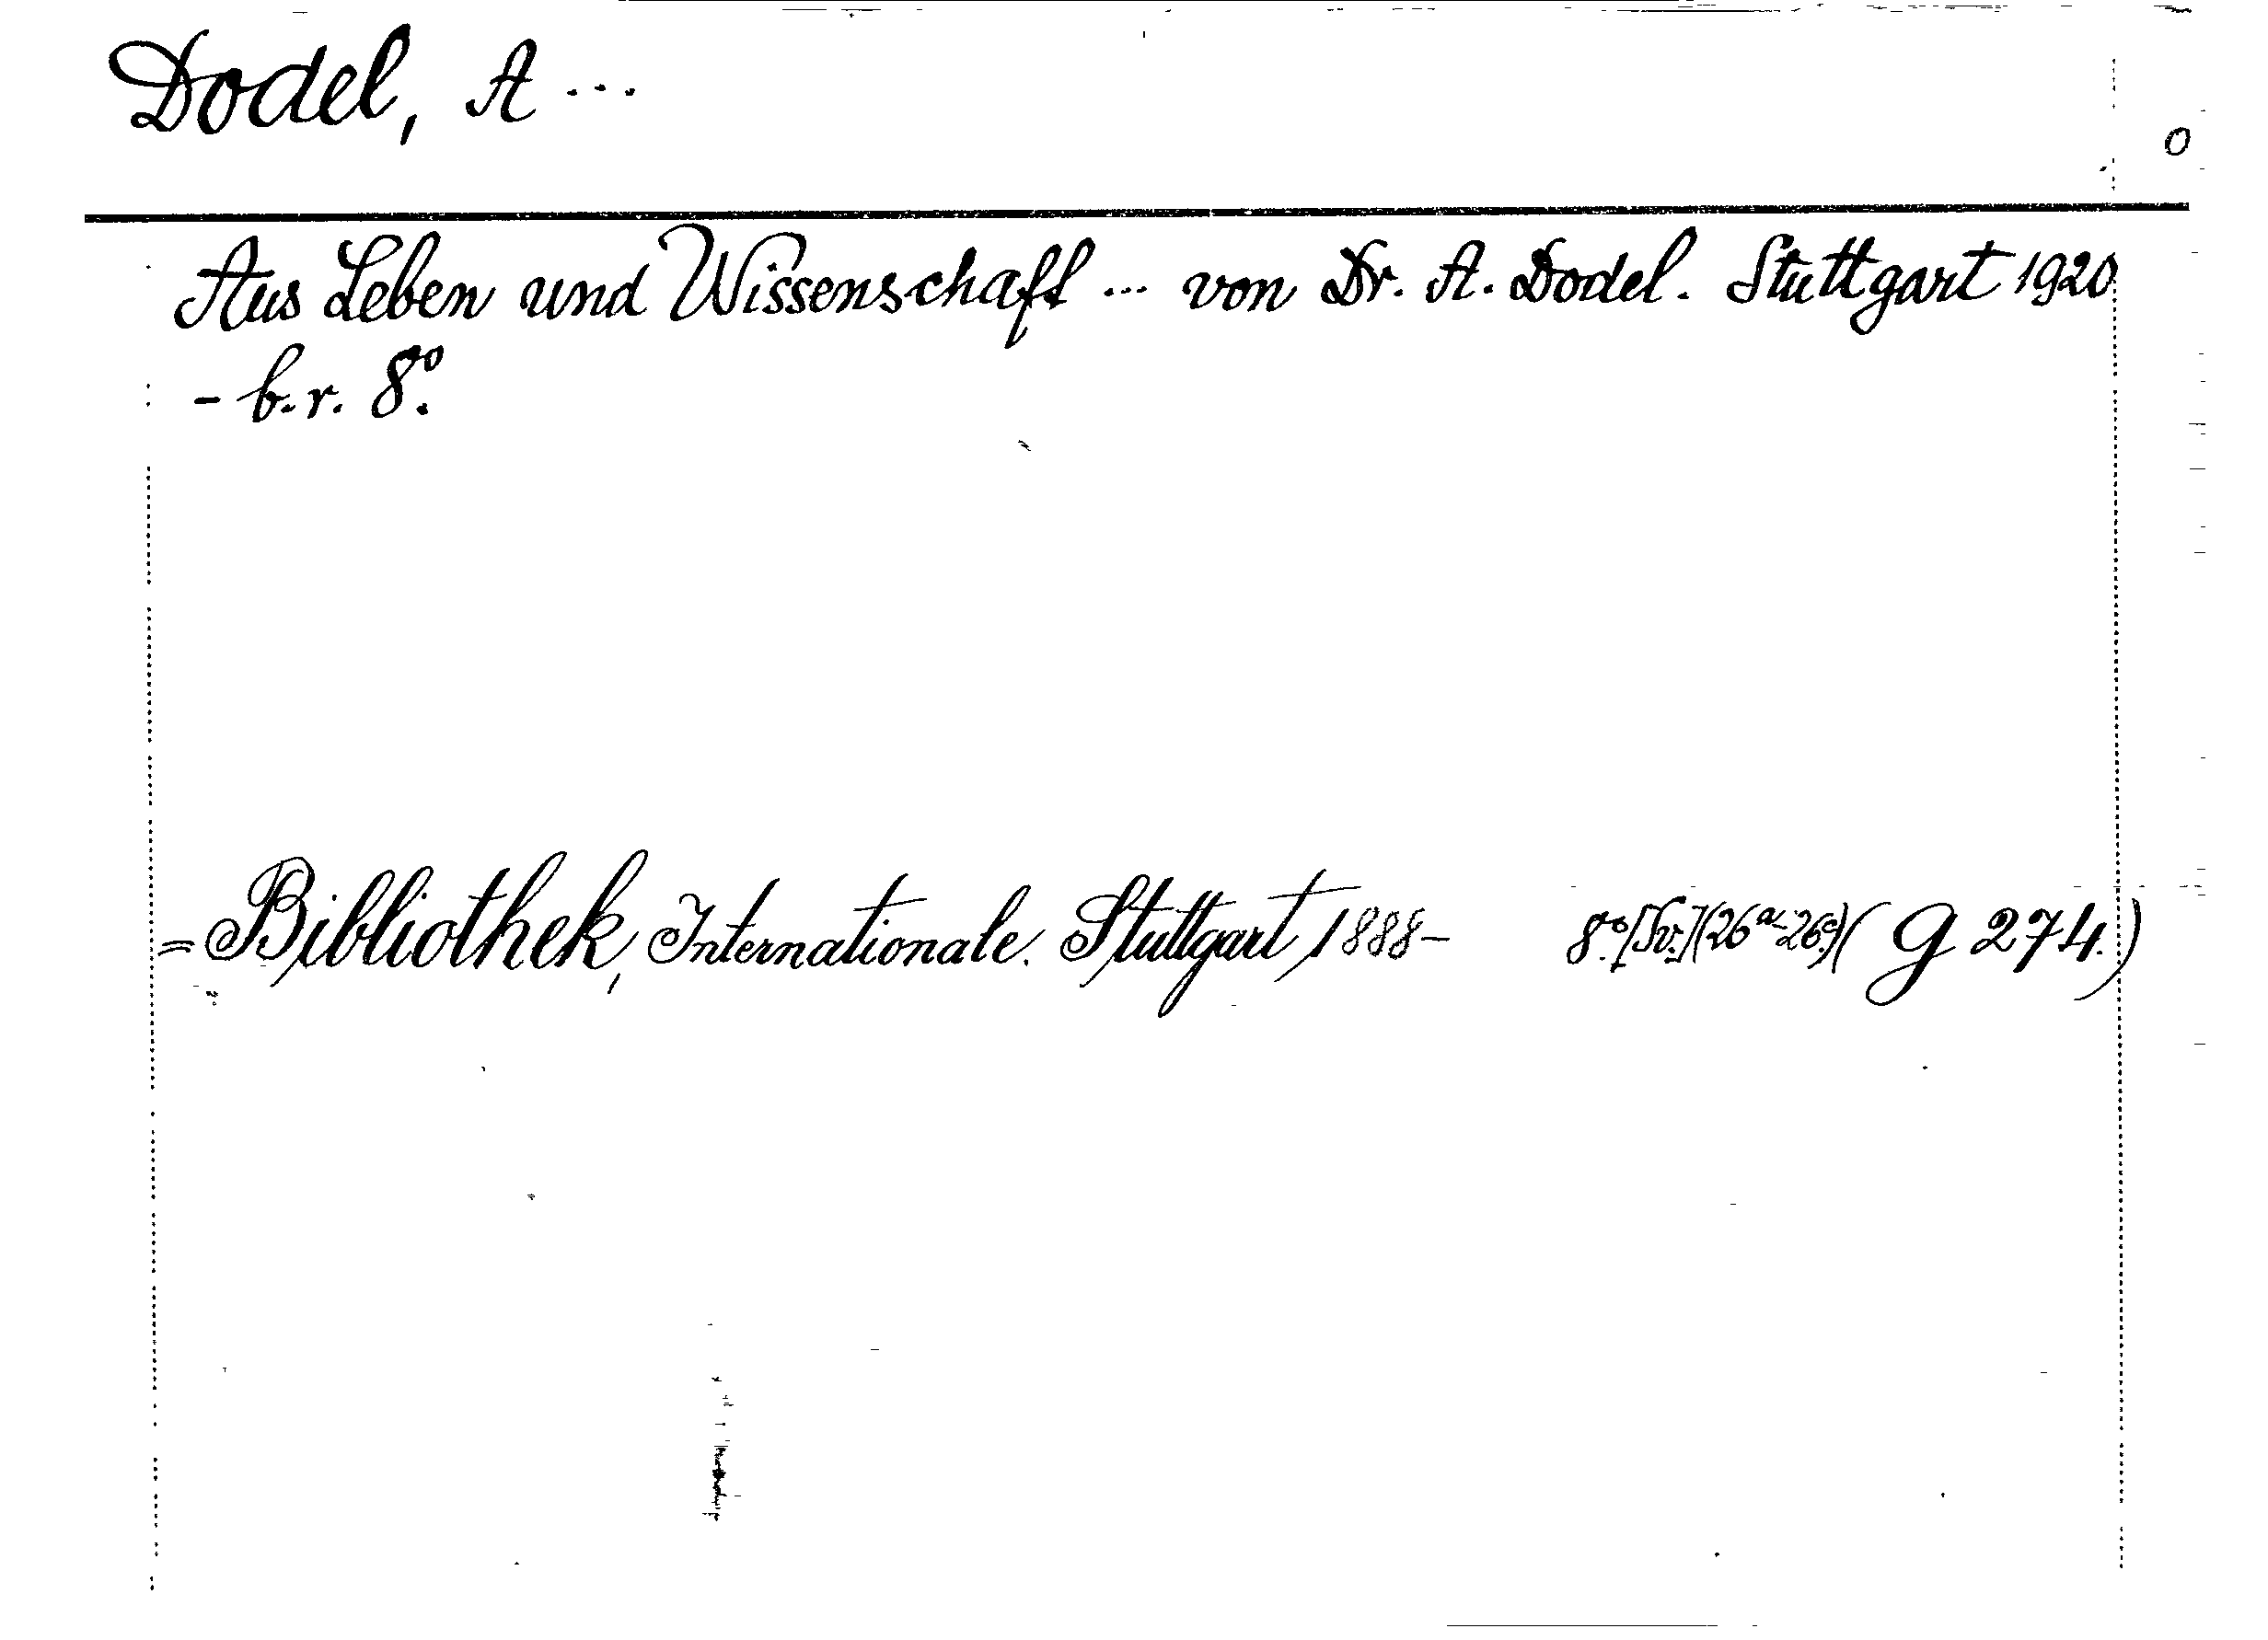 Dodel, A ...
0
Aus Leben und Wissenschaft ... von Dr. A. Dodel. Stuttgart 1920
- b.r. 8º.
= Bibliothek, Internationale. Stuttgart 1888- 8º. (26a-26c) (G 274.)